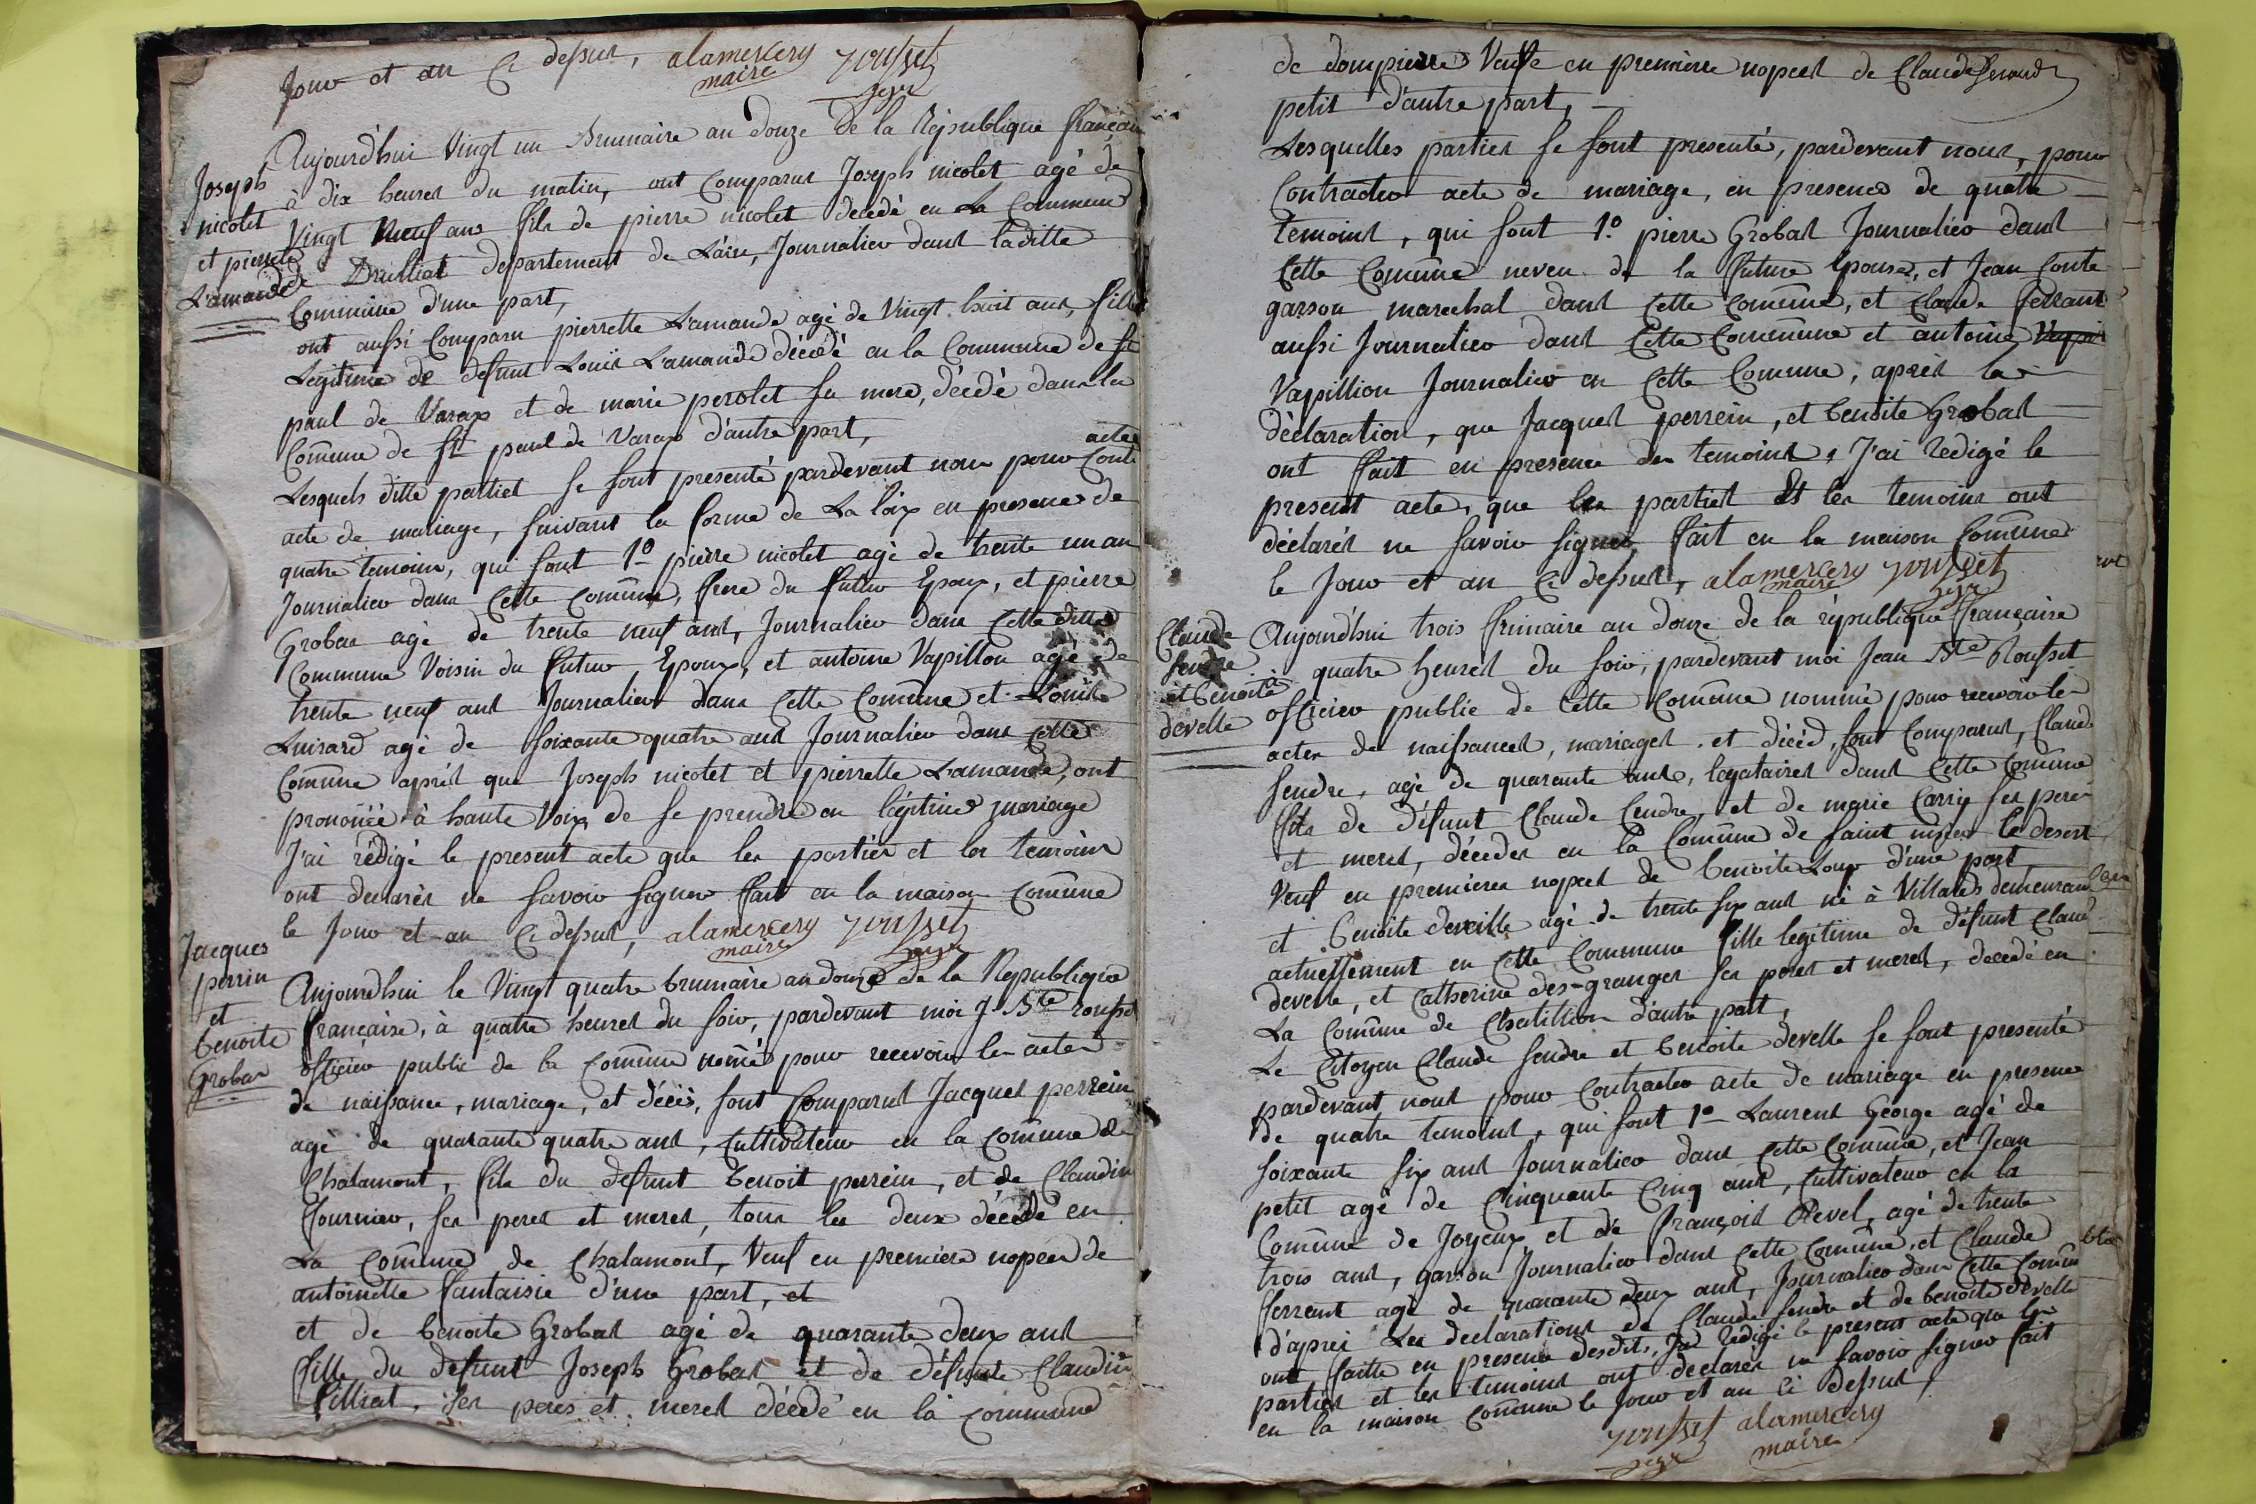 Jour et an Ci dessus, alamercery Rousset
maire
Aujourd'hui Vingt un Brumaire an douze de la République française
Joseph
nicolet
et pierrette
Lamande
à dix heures du matin, ont Comparus Joseph nicolet agé de
Vingt Neuf ans fils de pierre nicolet decedé en La Commune
de Druilliat departement de L'ain, Journalier dans laditte
Commune d'une part,
ont aussi Comparu pierrette Lamande agé de Vingt huit ans, fille
Legitime de defunt Louis Lamande décédé en la Commune de St
paul de Varax et de marie perolet sa mere, décédé dans la
Comune de St paul de Varax d'autre part,
Lesquels ditte parties se sont presenté pardevant nous pour Cont acter
acte de mariage, suivant la forme de La loix en presence de
quatre temoins, qui sont 1o pierre nicolet agé de trente un an
Journalier dans Cette Comune, frere du futur Epoux, et pierre
Grobas agé de trente neuf ans, Journalier dans Cette ditte
Commune Voisin du futur Epoux, et antoine Vapillon agé de
trente neuf ans Journalier dans Cette Comune et Louis
Luisard agé de soixante quatre ans Journalier dans Cette
Comune aprés que Joseph nicolet et pierrette Lamande, ont
prononcé à haute Voix de se prendre en légitime mariage
J'ai rédigé le present acte que les parties et les temoins
ont declarés ne savoir signer fait en la maison Comune
le Jour et an Ci dessus, alamercery Rousset
maire
Jacques
perrin
et
benoite
Grobas
Aujourdhui le Vingt quatre brumaire an douze de la Republique
française, à quatre heures du soir, pardevant moi J. Bte rousset
officier public de la Comune nomé pour recevoir les actes
de naissance, mariage, et décés, sont Comparus Jacques perrein
agé de quarante quatre ans, Cultivateur en la Comune de
Chalamont, fils du defunt benoit perrein, et de Claudine
fournier, ses peres et meres, tous les deux décédé en
La Comune de Chalamont, Veuf en premiere nopces de
antoinette fantaisie d'une part, et
et de benoite Grobas agé de quarante deux ans
fille du defunt Joseph Grobas et de défunte Claudine
fillieat, ses peres et meres décédé en la Commune
de dompierre Veuve en premiere nopces de Claude
petit d'autre part,
Lesquelles parties se sont presenté, pardevant nous, pour
Contracter acte de mariage, en presence de quatre
temoins, qui sont 1o pierre Grobas Journalier dans
Cette Comune neveu de la future Epouse, et Jean Conte
garson marechal dans Cette Comune, et Claude ferrant
aussi Journalier dans Cette Commune et antoine
Vapillion Journalier en Cette Comune, aprés la
déclaration, que Jacques perrein, et benoite Grobas
ont fait en presence des temoins, J'ai redigé le
present acte, que les parties et les temoins ont
déclarés ne savoir signer, fait en la maison Comune
le Jour et an Ci dessus, alamercery Rousset
maire
Claude
fendre
et benoite
develle
Aujourd'hui trois frimaire an douze de la république française
à quatre heures du soir, pardevant moi Jean Bte Rousset
officier public de Cette Comune nommé pour recevoir les
actes de naissances, mariages, et décéd, sont Comparus, Claude
fendre, agé de quarante ans, légataires dans Cette Comune
fils de défunt Claude fendre, et de marie Carrix ses peres
et meres, décédés en la Comune de saint nizier le desert
Veuf en premieres nopces de benoite Loup d'une part
et Benoite develle agé de trente six ans né à Villards demeurant
actuellement en Cette Commune fille legitime de défunt Claude
develle, et Catherine des-granges ses peres et meres, decedé en
La Comune de Chatillion d'autre part,
Le Citoyen Claude fendre et benoite develle se sont presenté
pardevant nous pour Contracter acte de mariage en presence
de quatre temoins, qui sont 1o Laurent George agé de
soixante six ans Journalier dans Cette Comune, et Jean
petit agé de Cinquante Cinq ans, Cultivateur en la
Comune de Joyeux, et de françois Revel, agé de trente
trois ans, garson Journalier dans Cette Comune, et Claude
ferrant agé de quarante deux ans, Journalier dans Cette Comune
d'aprés Les declarations de Claude fendre et de benoite develle
ont faitte en presence desdits, J'ai redigé le present acte que les
parties et les temoins ont declarés ne savoir signer fait
en la maison Comune le Jour et an Ci dessus,
Rousset alamercery
maire